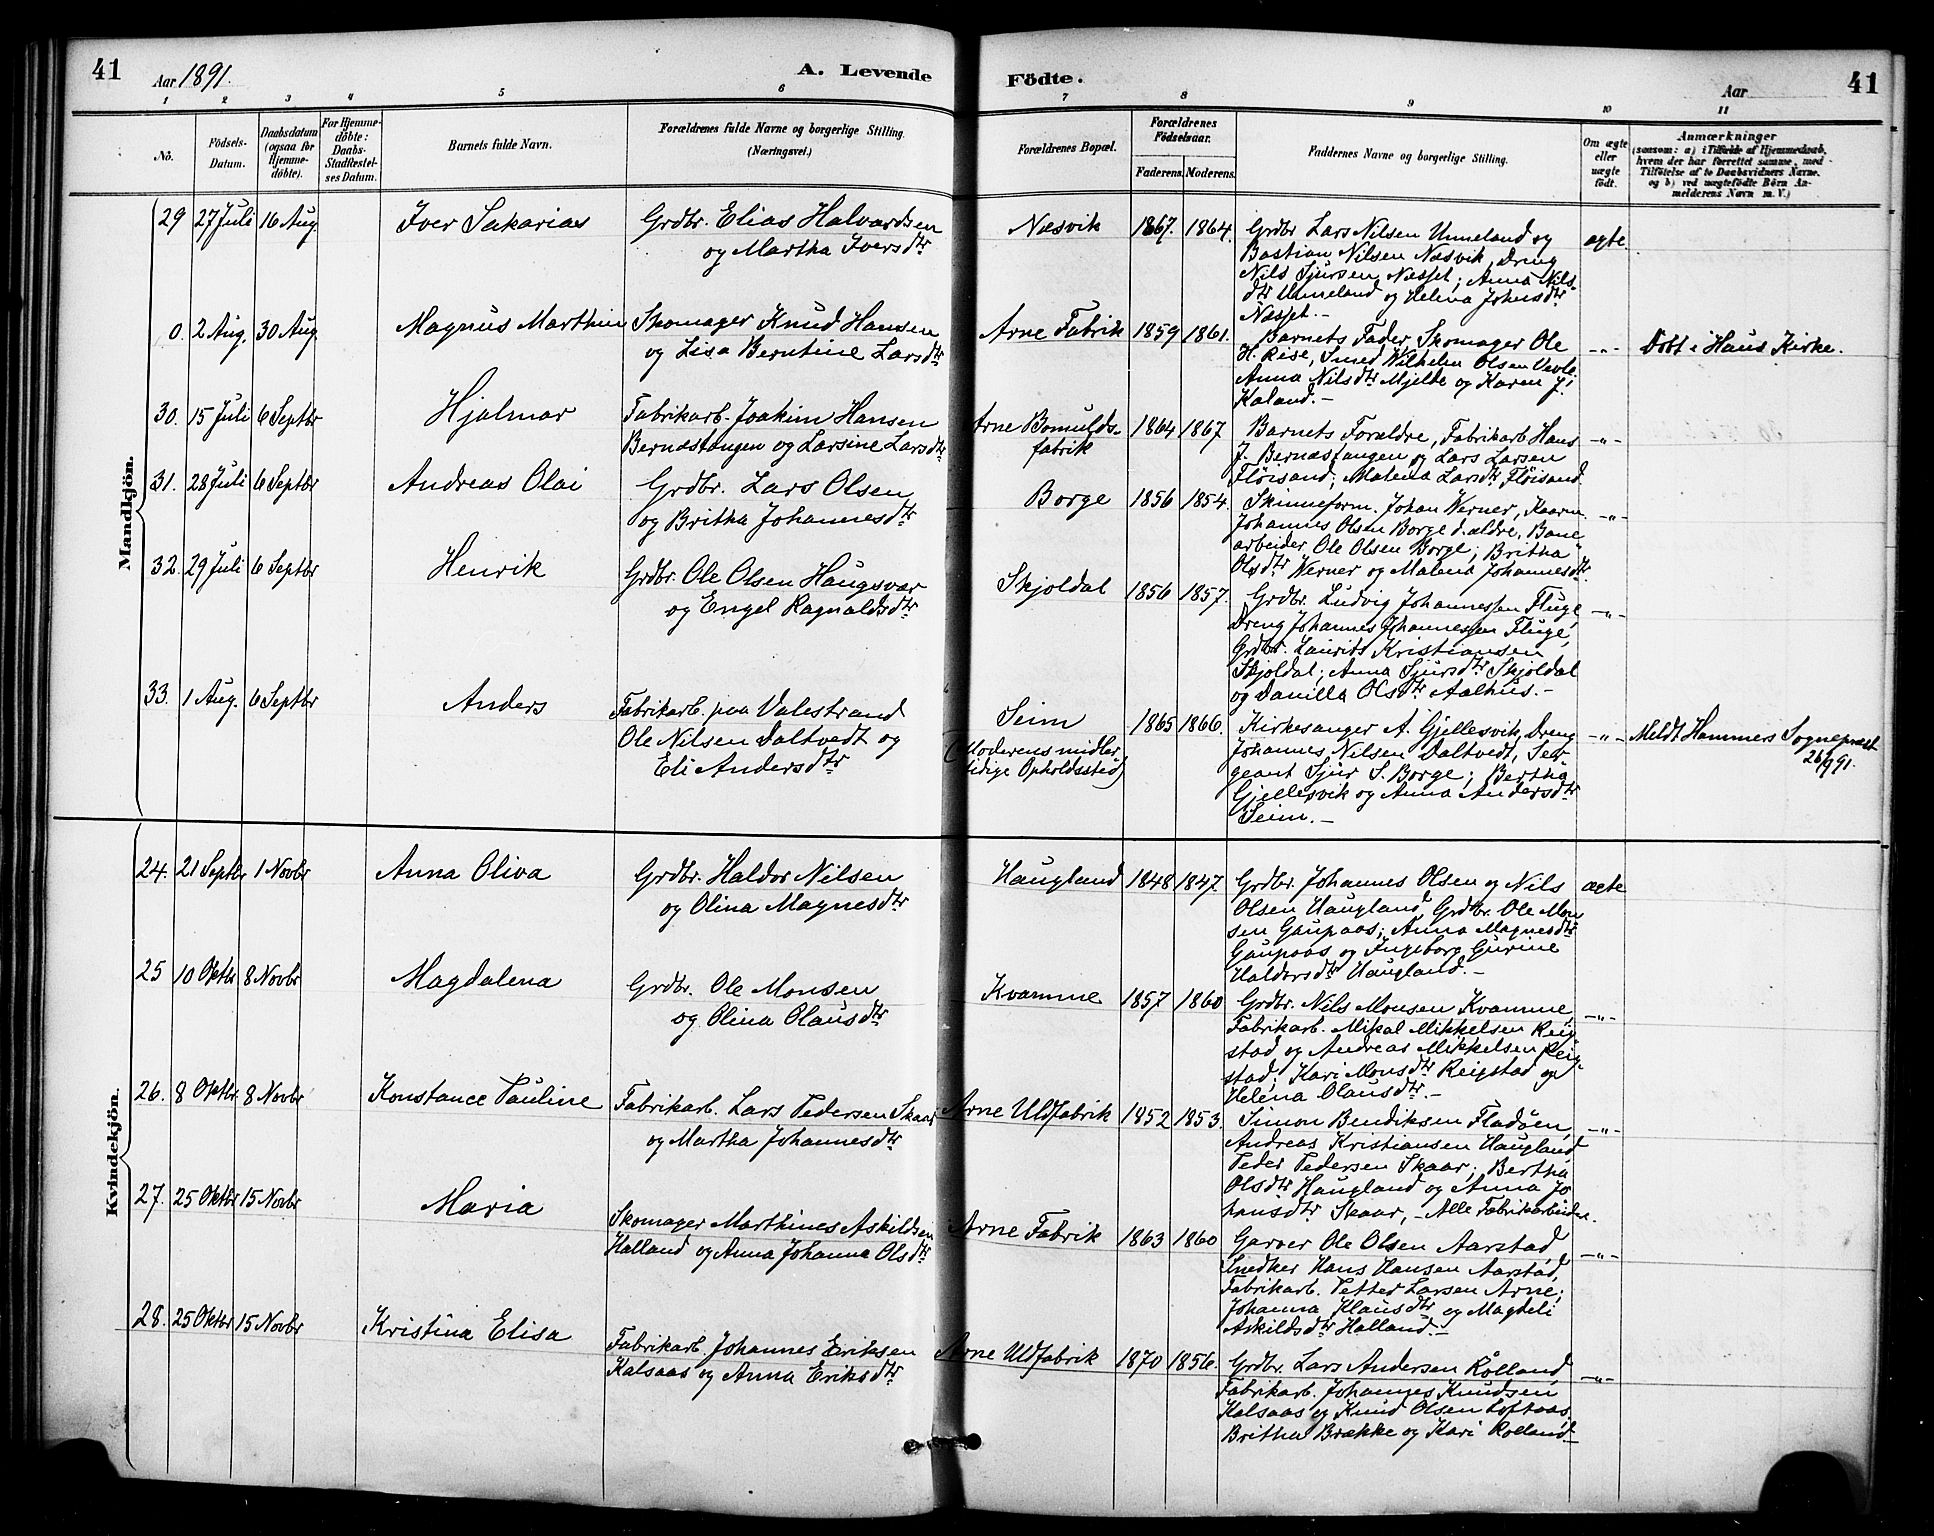 41
Aar 1891.
A. Levende
Födte.
Aar
41
1 2 3 4 5 6 7 8 9 10 11
No.
Födsels-
Datum.
Daabsdatum
(ogsaa for
Hjemme-
döbte).
For Hjemme-
döbte:
Daabs-
Stadfæstel-
ses Datum.
Barnets fulde Navn.
Forældrenes fulde Navne og borgerlige Stilling.
(Næringsvei.)
Forældrenes Bopæl.
Forældrenes
Födselsaar.
Faderens. Moderens.
Faddernes Navne og borgerlige Stilling.
Om ægte
eller
uægte
födt.
Anmærkninger
(saasom: a) i Tilfælde af Hjemmedaab,
hvem der har forrettet samme, med
Tilföielse af to Daabsvidners Navne.
og b) ved uægtefödte Börn An-
melderens Navn m. V.)
Mandkjön.
29 27 Juli 16 Aug. Iver Sakarias
Grdbr. Elias Halvardsen
og Martha Iversdtr
Næsvik 1867. 1864.
Grdbr Lars Nilsen Unneland og
Bastian Nilsen Næsvik, Dreng
Nils Sjursen Næsset; Anna Nils-
dtr Unneland og Helena Johnsdtr
Næsset.-
ægte.
0. 2 Aug. 30 Aug. Magnus Marthin
Skomager Knud Hansen
og Lisa Berntine Larsdtr
Arne Fabrik 1859 1861.
Barnets Fader, Skomager Ole
H. Rise, Smed Wilhelm Olsen
Anna Nilsdtr Mjelde og Karen J.
Kaland.-
-"-
Döbt i Haus Kirke.
30. 15 Juli 6 Septbr Hjalmar
Fabrikarb. Joakim Hansen
Bernæstangen og Larsine Larsdtr
Arne Bomulds-
fabrik
1864 1867
Barnets Forældre, Fabrikarb Hans
J. Bernæstangen og Lars Larsen
Flöisand; Malena Larsdtr Flöisand.
-"-
31. 28 Juli 6 Septbr Andreas Olai
Grdbr. Lars Olsen
og Britha Johannesdtr
Borge 1856 1854.
Skinneform. Johan Werner, Kaarm.
Johannes Olsen Borge d. ældre, Bane
arbeider Ole Olsen Borge; Britha
Olsdtr Werner og Malena Johannesdtr.
-"-
32. 29 Juli 6 Septbr Henrik
Grdbr. Ole Olsen Haugsvær
og Engel Ragnaldsdtr
Skjoldal 1856 1857.
Grdbr. Ludvig Johannessen Fluge,
Dreng Johannes Johannessen Fluge,
Grdbr. Laurits Kristiansen
Skjoldal; Anna Sjursdtr Skjoldal
og Danille Olsdtr Aalhus.-
-"-
33. 1 Aug. 6 Septbr Anders
Fabrikarb. paa Valestrand
Ole Nilsen Daltvedt og
Eli Andersdtr
Seim
(Moderens midler
tidige Opholdssted)
1865 1866.
Kirkesanger A. Gjellesvik, Dreng
Johannes Nilsen Daltvedt, Ser-
geant Sjur S. Borge; Bertha
Gjellesvik og Anna Andersdtr
Seim.-
-"-
Meldt Hammers Sognepræst
26/9 91.
Kvindekjön.
24. 21 Septbr 1 Novbr Anna Oliva
Grdbr. Haldor Nilsen
og Olina Magnesdtr
Haugland 1848 1847
Grdbr. Johannes Olsen og Nils
Olsen Haugland, Grdbr. Ole Mon
sen Gaupaas; Anna Magnesdtr
Gaupaas og Ingeborg Gurine
Haldorsdtr Haugland.-
ægte
25 10 Oktbr 8 Novbr Magdalena
Grdbr. Ole Monsen
og Olina Olausdtr
Kvamme 1857 1860
Grdbr. Nils Monsen Kvamme,
Fabrikarb. Mikal Mikkelsen Reig
stad og Andreas Mikkelsen Reig-
stad; Kari Monsdtr Reigstad og
Helena Olausdtr.-
-"-
26. 8 Oktbr. 8 Novbr Konstance Pauline
Fabrikarb. Lars Pedersen Skaar
og Martha Johannesdtr
Arne Uldfabrik 1852 1853.
Simon Bendiksen Fladöen,
Andreas Kristiansen Haugland
Peder Pedersen Skaar; Bertha
Olsdtr Haugland og Anna Jo
hansdtr Skaar,- Alle Fabrikarbeidere.
-"-
27. 25 Oktbr 15 Novbr Maria
Skomager Marthines Askildsen
Halland og Anna Johanna Olsdtr
Arne Fabrik 1863 1860
Garver Ole Olsen Aarstad,
Snedker Hans Hansen Aarstad,
Fabrikarb. Petter Larsen Arne;
Johanna Klausdtr og Magdeli
Askildsdtr Halland.-
-"-
28. 25 Oktbr 15 Novbr Kristina Elisa
Fabrikarb. Johannes Eriksen
Kalsaas og Anna Eriksdtr
Arne Uldfabrik 1870 1856.
Grdbr. Lars Andersen Rolland,
Fabrikarb. Johannes Knudsen
Kalsaas og Knud Olsen Loftaas,
Britha Brække og Kari Rolland-
-"-